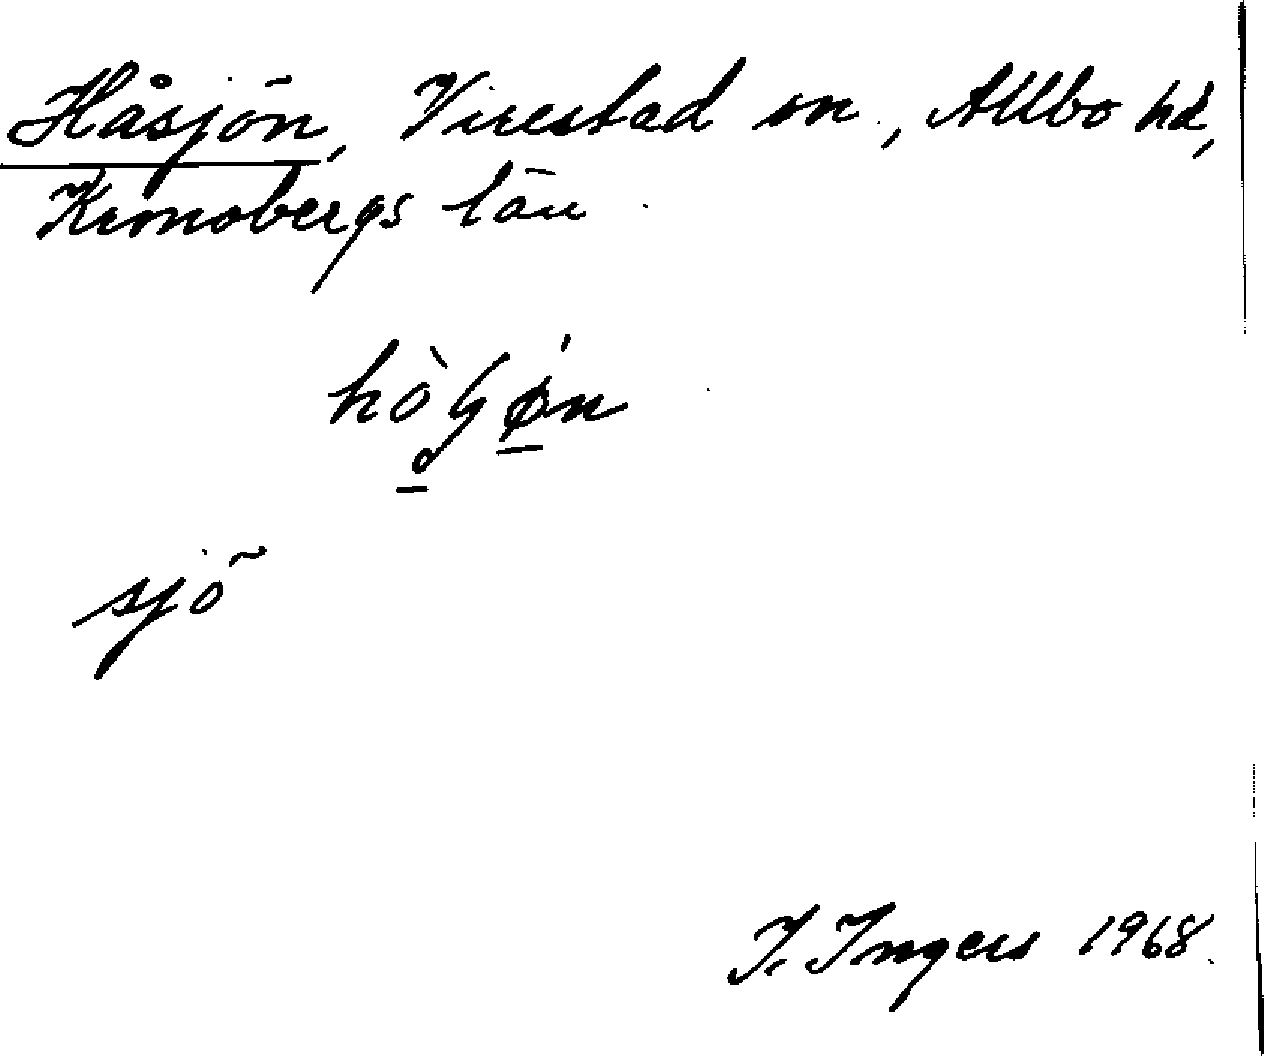 Håsjön, Virestad sn., Allbo hd,
Kronobergs län.
sjö
I. Ingers 1968.